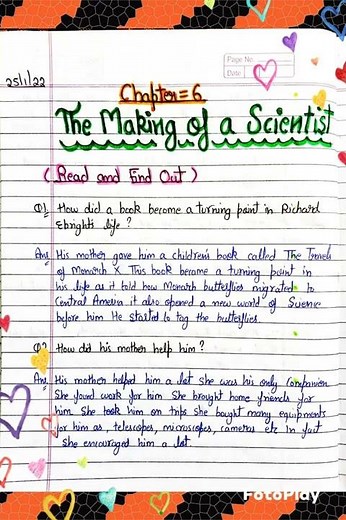 Page No
Date
25/1/22
Chapter = 6
The Making of a Scientist
( Read and Find Out )
Q1 How did a book become a turning point in Richard
Ebright's life ?
Ans His mother gave him a children's book called The Travels
of Monarch X This book become a turning point in
his life as it told how Monarch butterflies migrated to
Central America it also opened a new world of Science
before him He started to tag the butterflies.
Q2 How did his mother help him ?
Ans His mother helped him a lot She was his only companion
She found work for him She brought home friends for
him She took him on trips She bought many equipments
for him as, telescopes, microscopes, cameras etc In fact
She encouraged him a lot.
FotoPlay